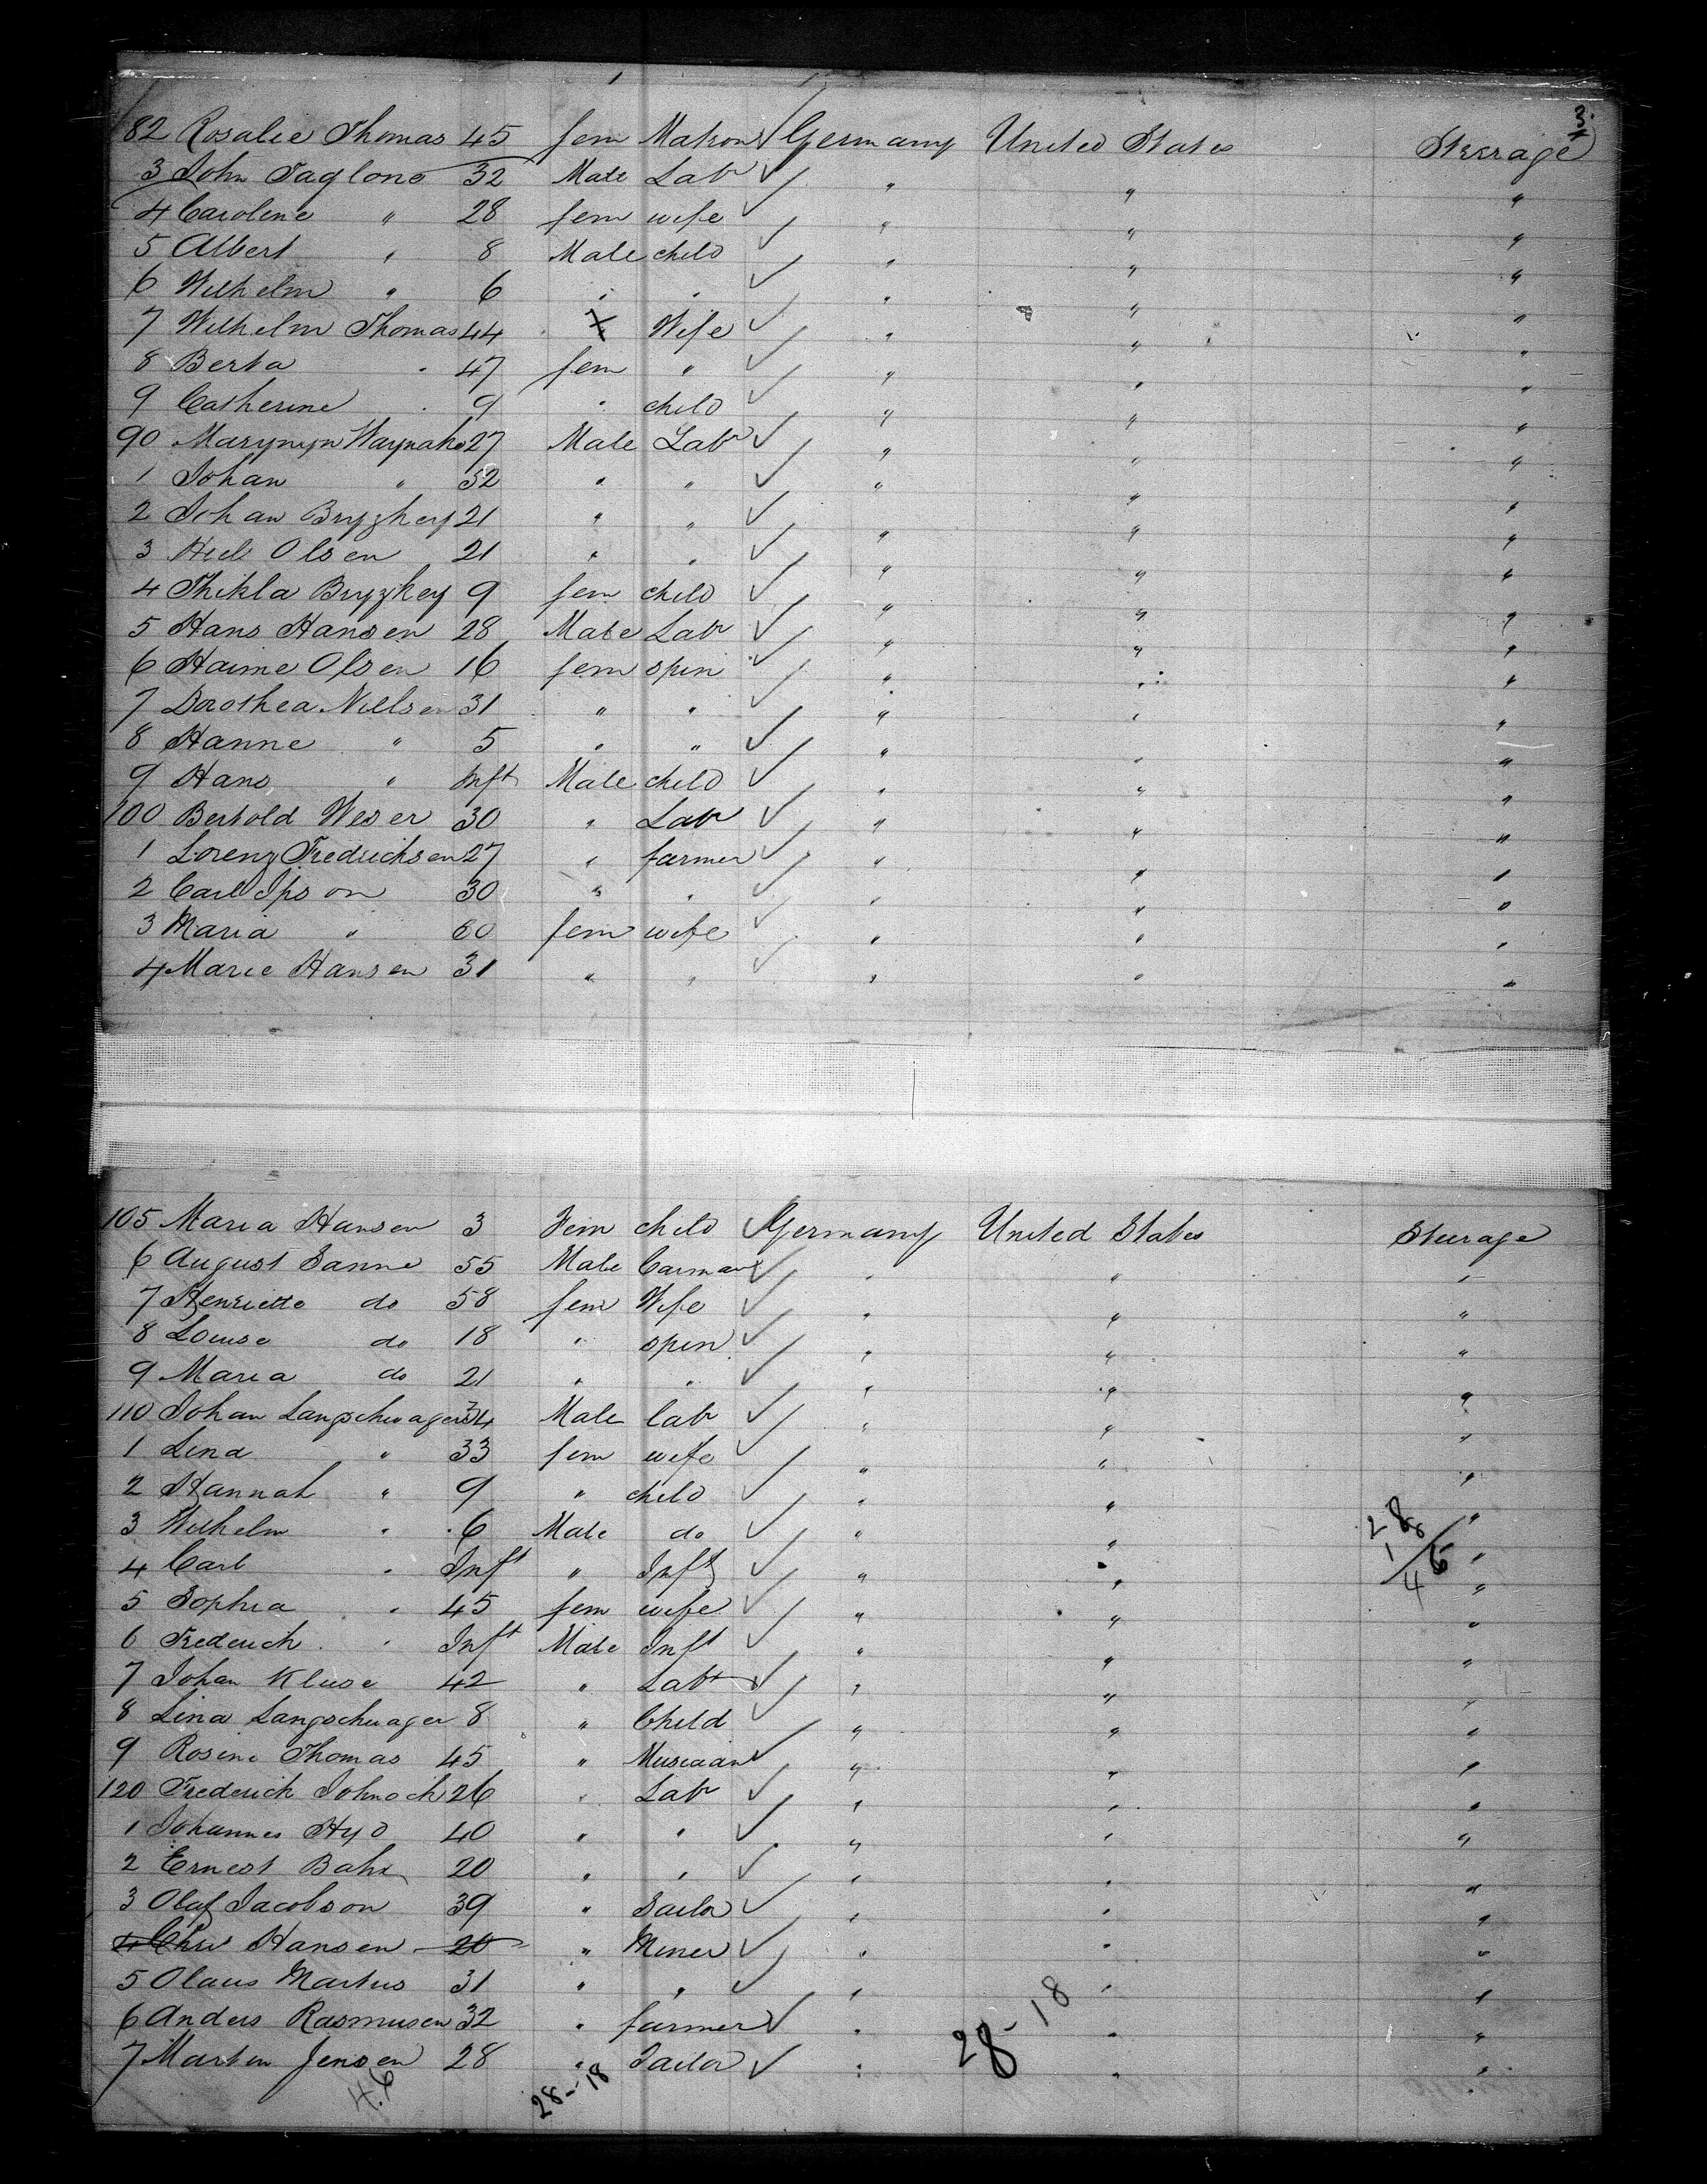 3.
82 Rosalie Thomas 45 fem Matron Germany United States Steerage
3 John Taglono 32 Male Labr " " "
4 Caroline " 28 fem wife " " "
5 Albert " 8 Male child " " "
6 Wilhelm " 6 " " " " "
7 Wilhelm Thomas 44 Wife " " "
8 Berta " 47 fem " " " "
9 Catherine " 9 " child " " "
90 27 Male Labr " " "
1 Johan " 52 " " " " "
2 Johan Bryzkey 21 " " " " "
3 Olsen 21 " " " " "
4 Thikla Bryzkey 9 fem child " " "
5 Hans Hansen 28 Male Labr " " "
6 Haime Olsen 16 fem spin " " "
7 Dorothea Nillsen 31 " " " " "
8 Hanne " 5 " " " " "
9 Hans " Inft Male child " " "
100 Bertold Weser 30 " Labr " " "
1 Lorenz Fredericksen 27 " farmer " " "
2 Carl Ipson 30 " " " " "
3 Maria " 60 fem wife " " "
4 Marie Hansen 31 " " " " "
105 Maria Hansen 3 Fem child Germany United States Steerage
6 August Sanne 55 Male Carman " " "
7 Henriette do 58 fem Wife " " "
8 Louise do 18 " spin " " "
9 Maria do 21 " " " " "
110 Johan Langschwager 34 Male labr " " "
1 Lina " 33 fem wife " " "
2 Hannah " 9 " child " " "
3 Wilhelm " 6 Male do " " "
4 Carl " Inft " Inft " " "
5 Sophia " 45 fem wife " " "
6 Frederich " Inft Male Inft " " "
7 Johan Kluse 42 " Labr " " "
8 Lina Langschwager 8 " Child " " "
9 Rosine Thomas 45 " Musician " " "
120 Frederich Johnoch 26 " Labr " " "
1 Johannes Hyd 40 " " " " "
2 Ernest Bahr 20 " " " " "
3 Olaf Jacobson 39 " Sailor " " "
4 Chri Hansen 20 " Miner " " "
5 Olaus Martus 31 " " " " "
6 Anders Rasmusen 32 " farmer " " "
7 Marten Jensen 28 " Tailor " " "
28-18
46 28-18